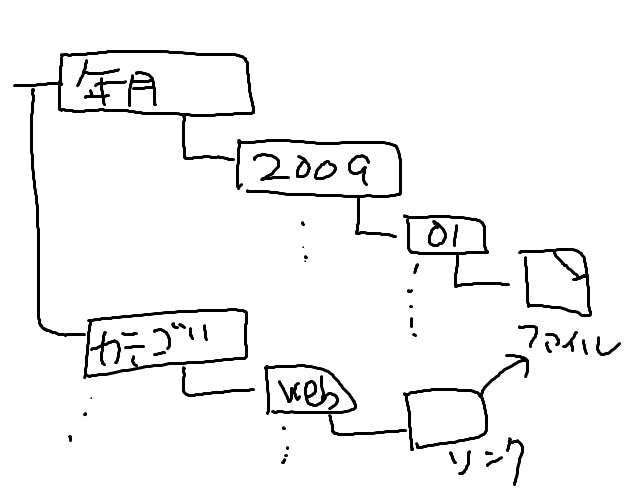 年月
2009
01
ファイル
カテゴリ
web
リンク